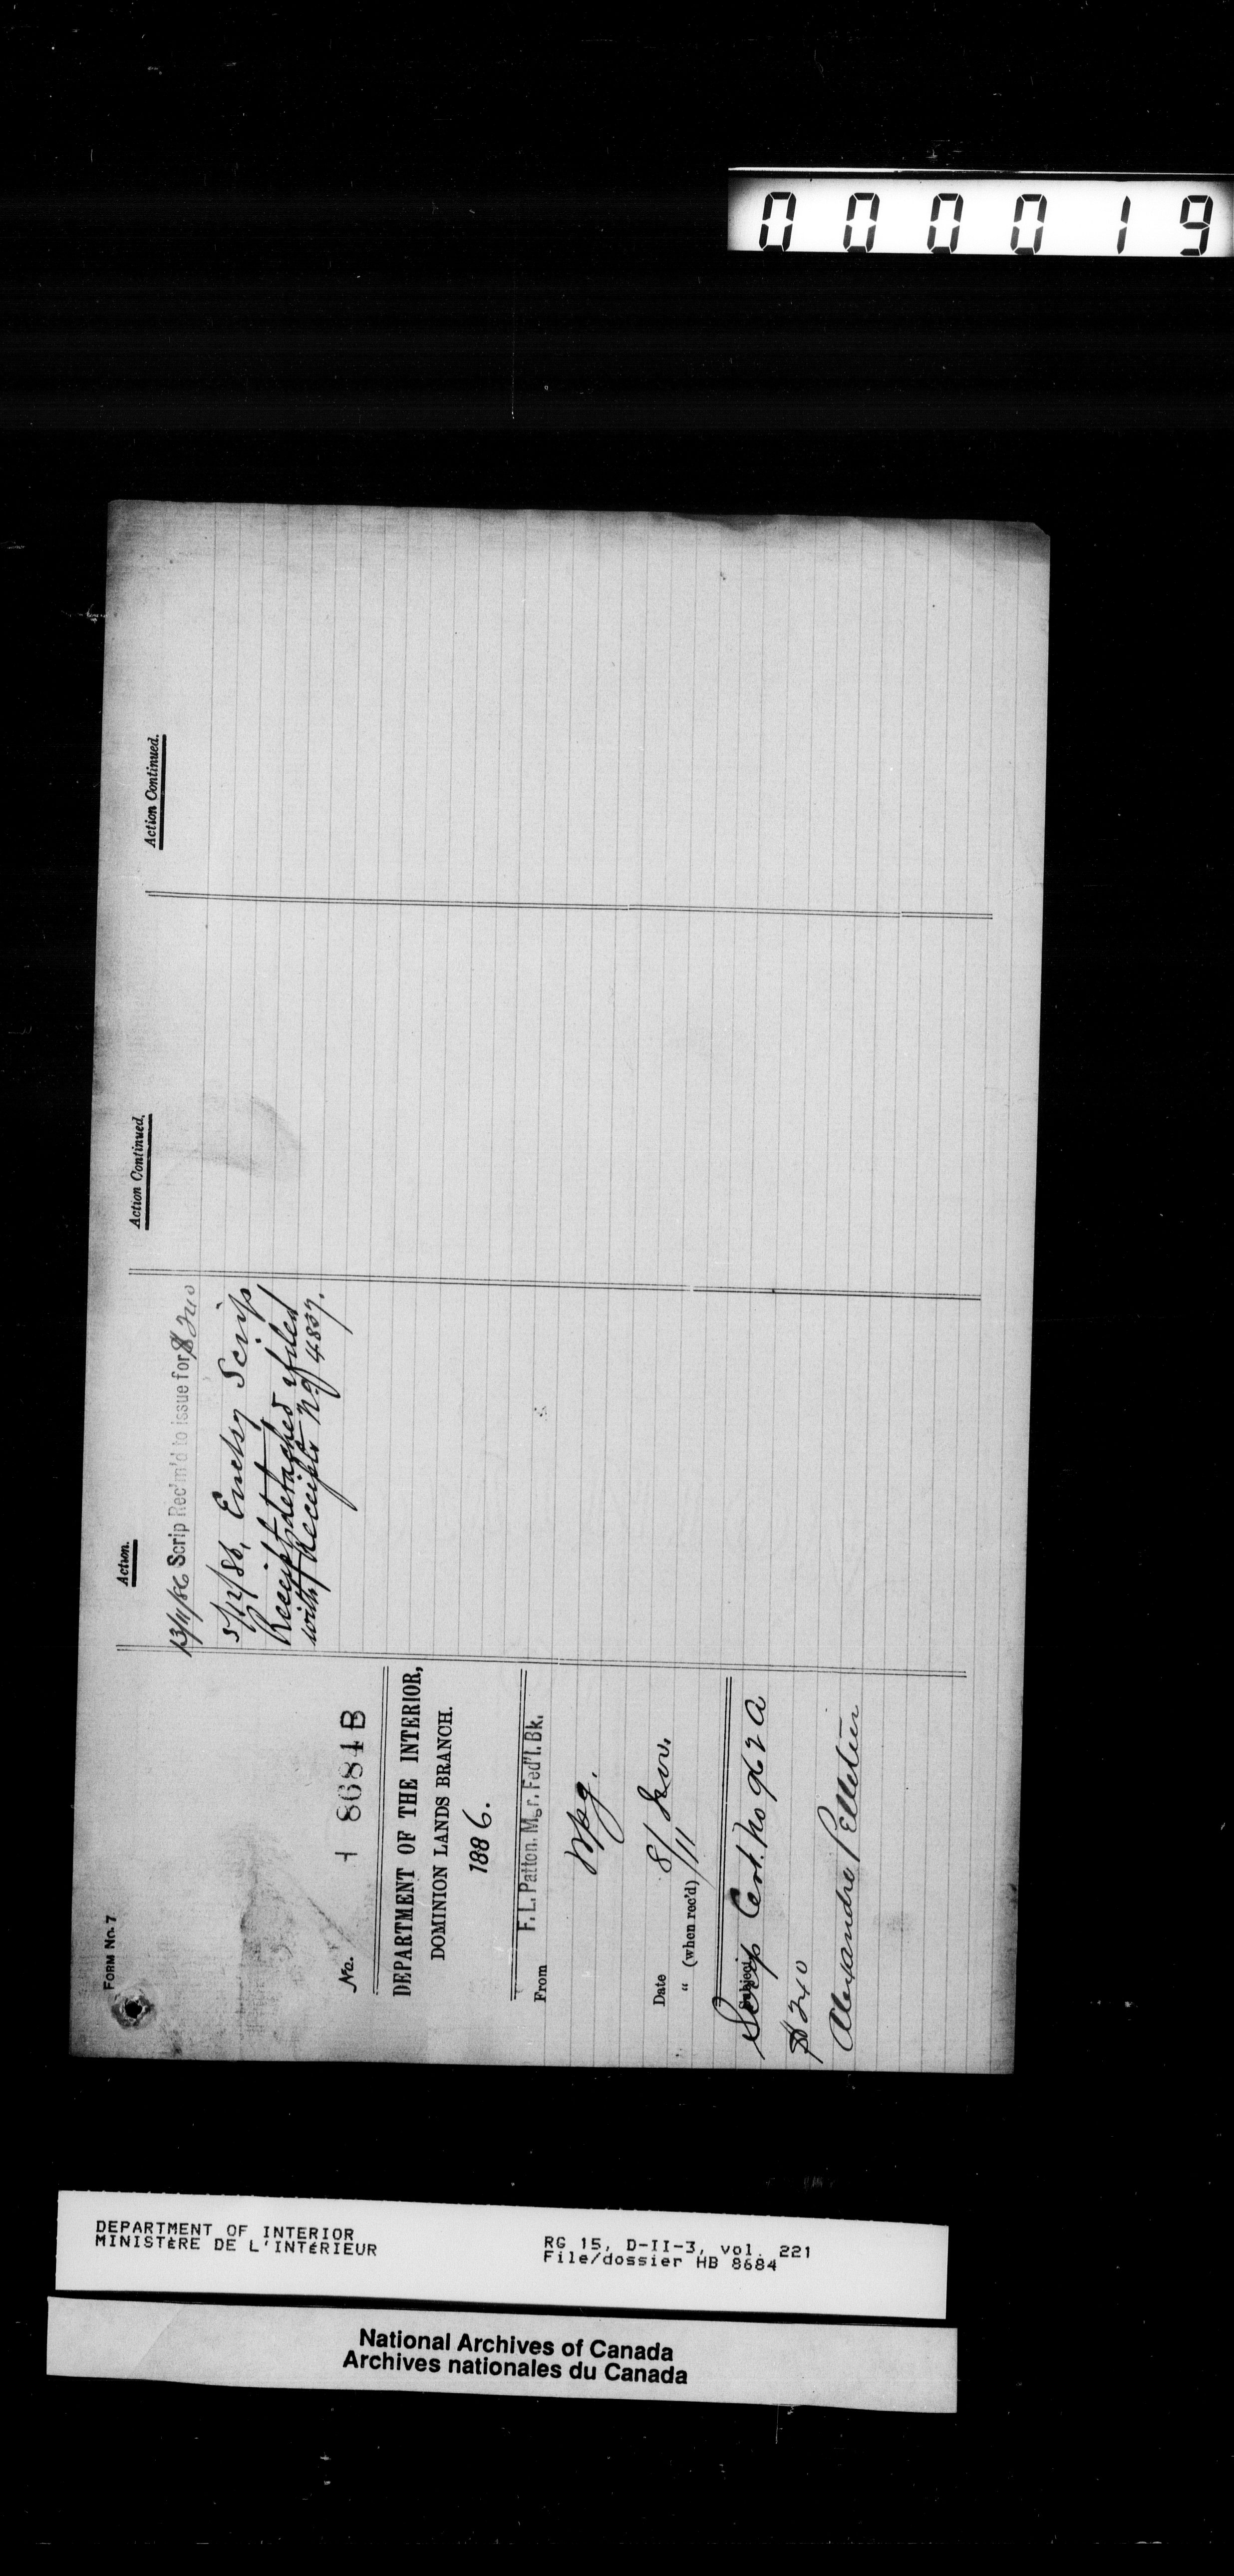 000019
FORM No. 7
No. 8684B
DEPARTMENT OF THE INTERIOR,
DOMINION LANDS BRANCH.
1886.
From F. L. Patton, Mgr. Fed'l. Bk.
Wpg.
Date 8/ Nov.
" (when rec'd) /11
Subject
Scrip Cert. No 962 A
$240
Alexandre Pelletier
Action.
13/11/86 Scrip Rec'm'd to issue for $240
5/12/86, Scrip
Receipt detached & filed
with Receipts No 4837.
Action Continued.
Action Continued.
DEPARTMENT OF INTERIOR
MINISTÈRE DE L'INTÉRIEUR
RG 15, D-II-3, vol. 221
File/dossier HB 8684
National Archives of Canada
Archives nationales du Canada